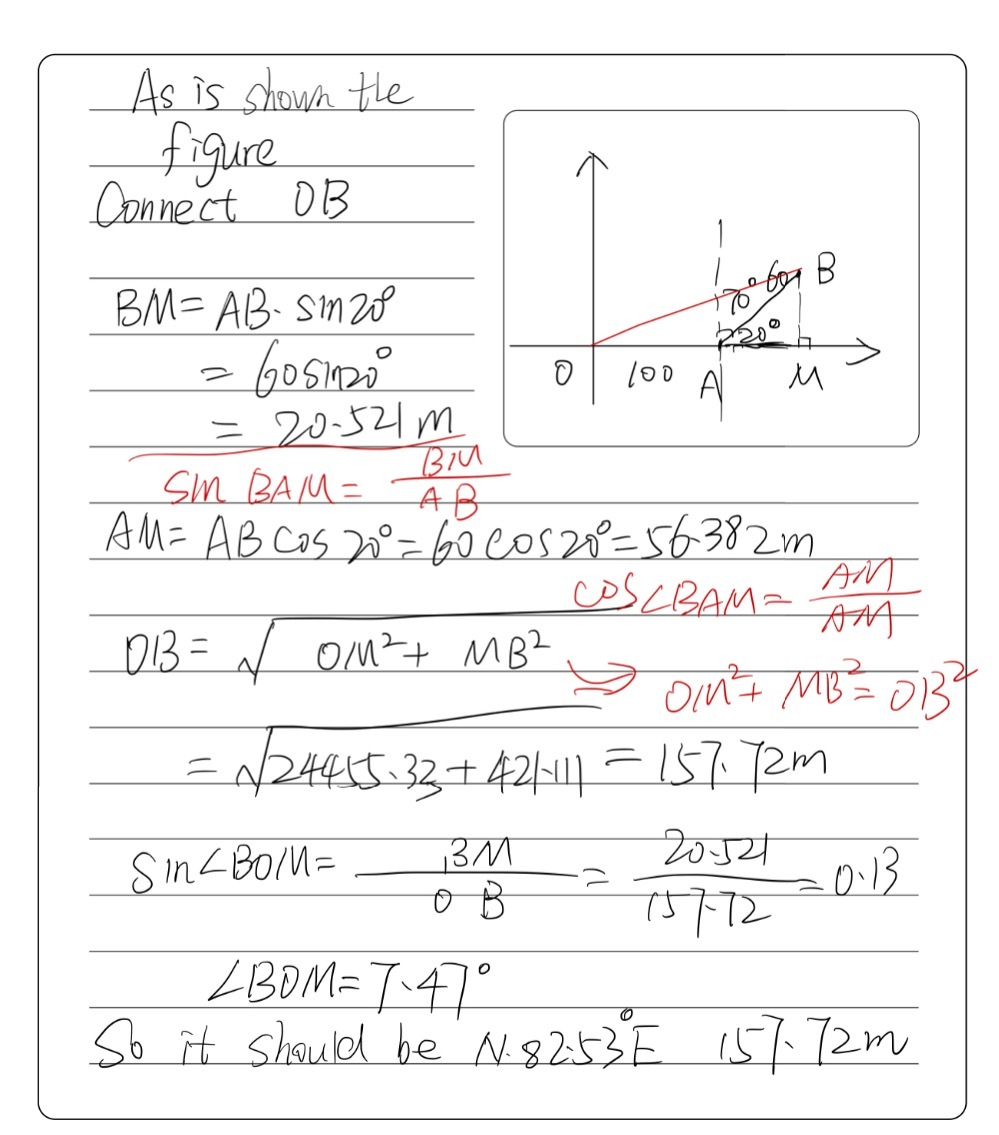 As is shown tle
figure
Connect OB
BM = AB· sin20°
= 60sin20°
= 20.521m
70° 60 B
20°
O 100 A M
Sin BAM = BM/AB
AM = AB cos 20° = 60 cos20° = 56.382m
COS∠BAM = AM/AM
OB = √OM²+ MB²
OM²+ MB² = OB²
= √24455.33 + 421.111 = 157.72m
Sin∠BOM = BM/OB = 20.521/157.72 = 0.13
∠BOM = 7.47°
So it should be N.82.53°E 157.72m